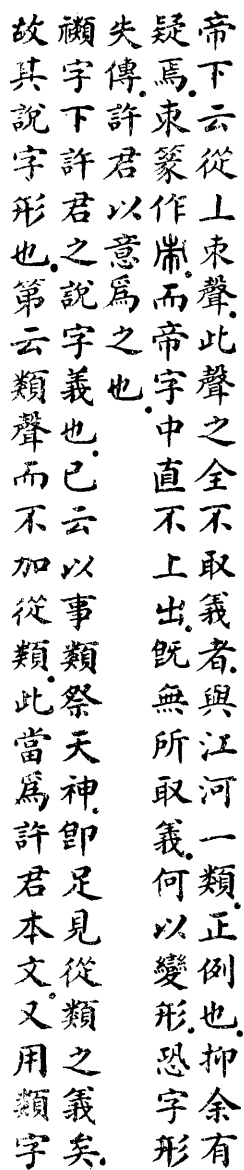 帝下云從丄朿聲.此聲之全不取義者.與江河一類.正例也.抑余有
疑焉.朿篆作𣎵.而帝字中直不上出.旣無所取義.何以變形.恐字形
失傳.許君以意爲之也.
禷字下許君之說字義也.已云以事類祭天神.卽足見從類之義矣.
故其說字形也.第云類聲而不加從類.此當爲許君本文.又用類字